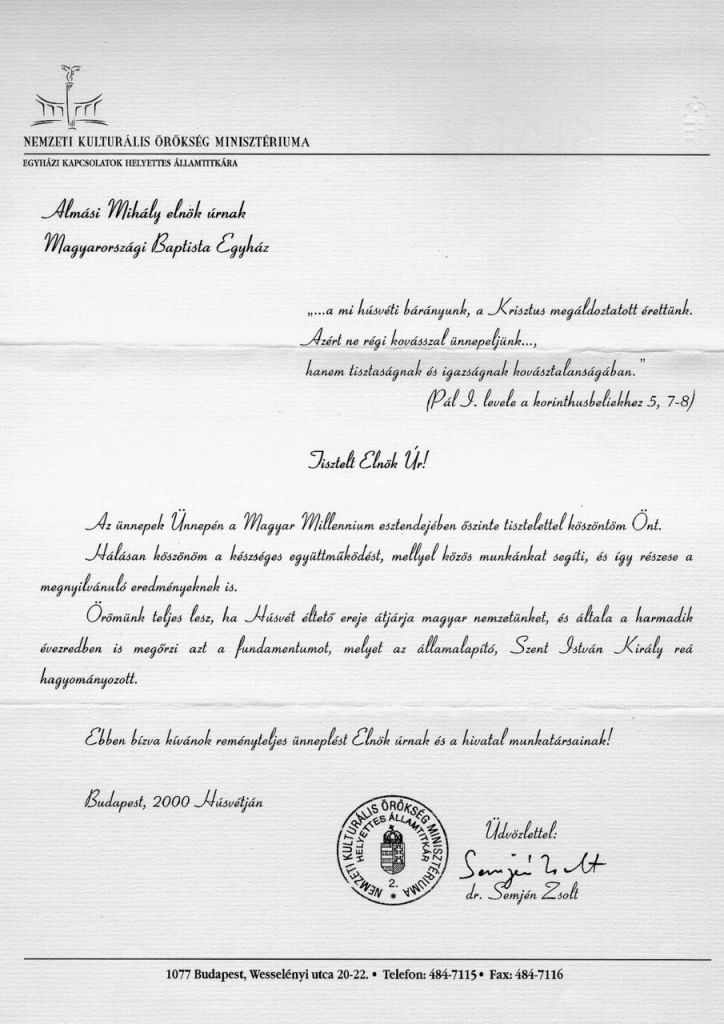 NEMZETI KULTURÁLIS ÖRÖKSÉG MINISZTÉRIUMA
EGYHÁZI KAPCSOLATOK HELYETTES ÁLLAMTITKÁRA
Almási Mihály elnök úrnak
Magyarországi Baptista Egyház
„...a mi húsvéti bárányunk, a Krisztus megáldoztatott érettünk.
Azért ne régi kovásszal ünnepeljünk...,
hanem tisztaságnak és igazságnak kovásztalanságában.”
(Pál I. levele a korinthusbeliekhez 5, 7-8)
Tisztelt Elnök Úr!
Az ünnepek Ünnepén a Magyar Millennium esztendejében őszinte tisztelettel köszöntöm Önt.
Hálásan köszönöm a készséges együttműködést, mellyel közös munkánkat segíti, és így részese a
megnyilvánuló eredményeknek is.
Örömünk teljes lesz, ha Húsvét éltető ereje átjárja magyar nemzetünket, és általa a harmadik
évezredben is megőrzi azt a fundamentumot, melyet az államalapító, Szent István Király reá
hagyományozott.
Ebben bízva kívánok reményteljes ünneplést Elnök úrnak és a hivatal munkatársainak!
Budapest, 2000 Húsvétján
NEMZETI KULTURÁLIS ÖRÖKSÉG MINISZTÉRIUMA *
HELYETTES ÁLLAMTITKÁR
2.
Üdvözlettel:
Semjén Zsolt
dr. Semjén Zsolt
1077 Budapest, Wesselényi utca 20-22. • Telefon: 484-7115 • Fax: 484-7116